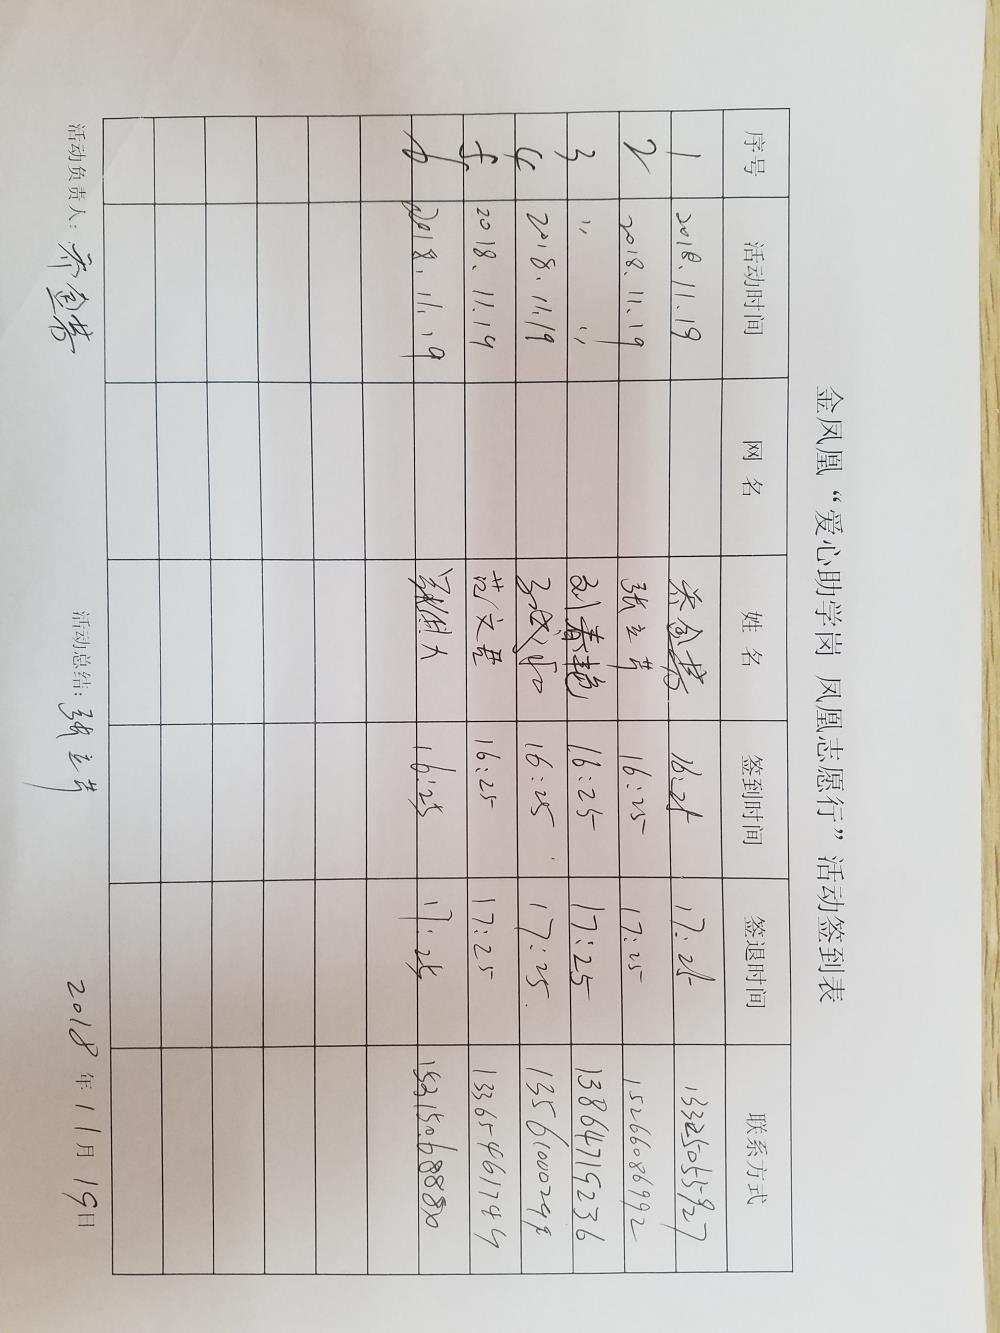 金凤凰“爱心助学岗 凤凰志愿行”活动签到表
序号 活动时间 网 名 姓 名 签到时间 签退时间 联系方式
1 2018.11.19 16:25 17:25
2 2018.11.19 张立芹 16:25 17:25 15266086992
3 〃 〃 刘春艳 16:25 17:25 13864719236
4 2018.11.19 16:25 17:25
5 2018.11.19 范文君 16:25 17:25 13365461749
6 2018.11.19 16:25 17:25
活动负责人: 活动总结: 张立芹 2018年11月19日